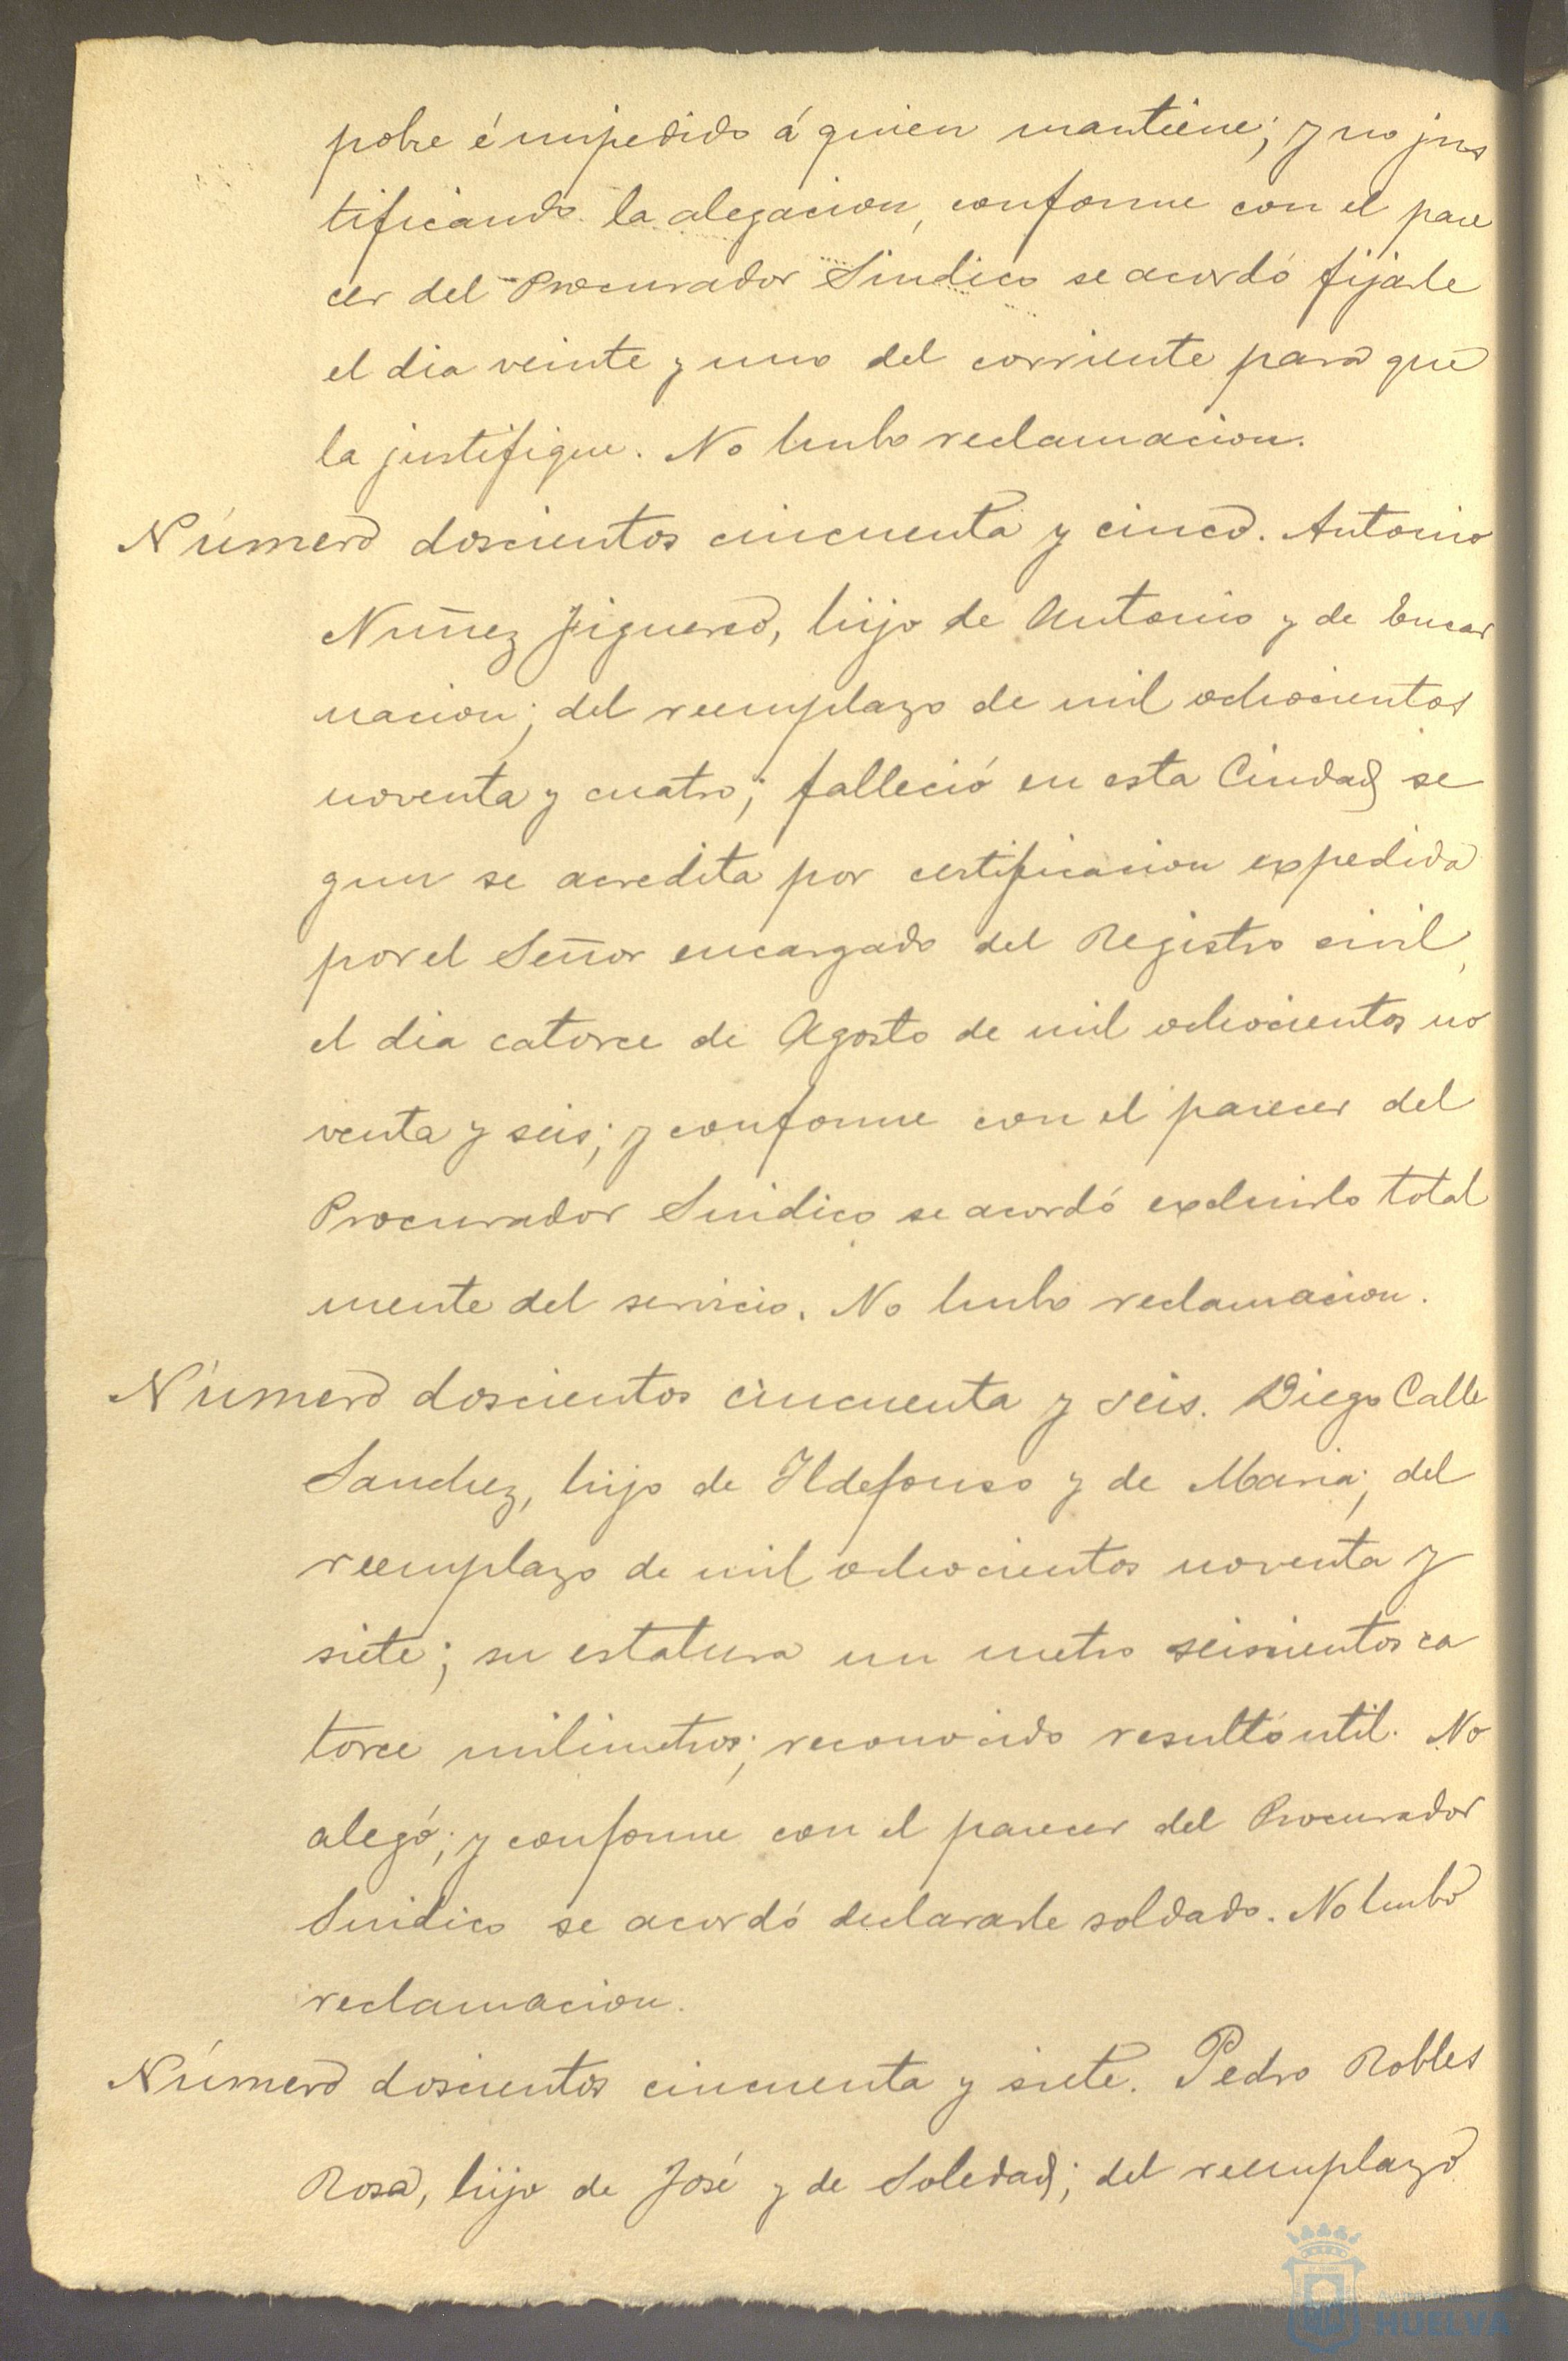 pobre é impedido á quien mantiene; y no jus
tificando la alegacion, conforme con el pare
cer del Procurador Sindico se acordó fijarle
el dia veinte y uno del corriente para que
la justifique. No hubo reclamacion.
Número doscientos cincuenta y cinco. Antonio
Nuñez Figuered, hijo de Antonio y de Encar
nacion; del reemplazo de mil ochocientos
noventa y cuatro; falleció en esta Ciudad se
gun se acredita por certificacion expedida
por el Señor encargado del Registro civil,
el dia catorce de Agosto de mil ochocientos no
venta y seis; y conforme con el parecer del
Procurador Sindico se acordó excluirlo total
mente del servicio. No hubo reclamacion.
Número doscientos cincuenta y seis. Diego Calle
Sanchez, hijo de Ildefonso y de Maria; del
reemplazo de mil ochocientos noventa y
siete; su estatura un metro seiscientos ca
torce milimetros; reconocido resultó util. No
alegó; y conforme con el parecer del Procurador
Sindico se acordó declararle soldado. No hubo
reclamacion.
Número doscientos cincuenta y siete. Pedro Robles
Rosa, hijo de José y de Soledad; del reemplazo
HUELVA